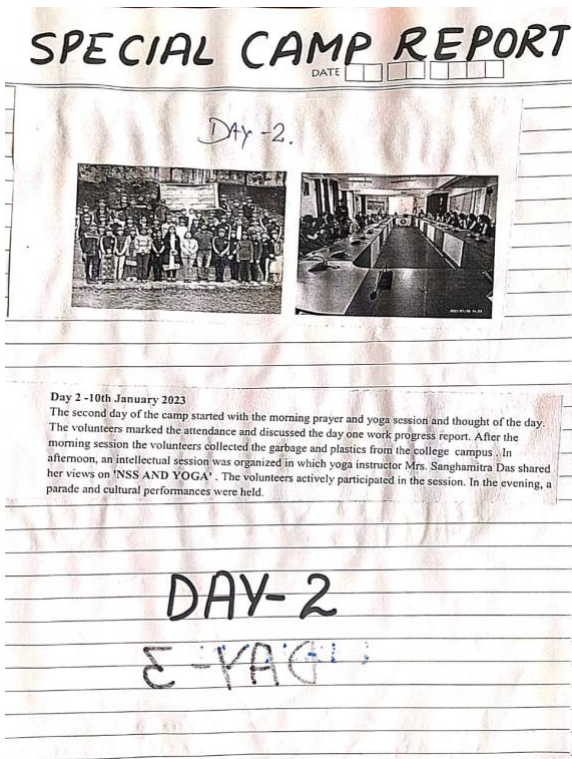 SPECIAL CAMP REPORT
DATE
DAY-2.
Day 2 -10th January 2023
The second day of the camp started with the morning prayer and yoga session and thought of the day.
The volunteers marked the attendance and discussed the day one work progress report. After the
morning session the volunteers collected the garbage and plastics from the college campus . In
afternoon, an intellectual session was organized in which yoga instructor Mrs. Sanghamitra Das shared
her views on 'NSS AND YOGA' . The volunteers actively participated in the session. In the evening, a
parade and cultural performances were held.
DAY-2
DAY-3